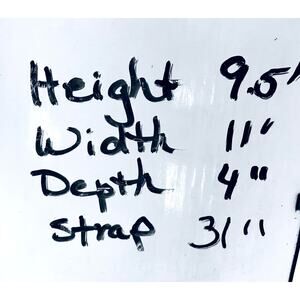 Height 9.5"
Width 11"
Depth 4"
Strap 31"